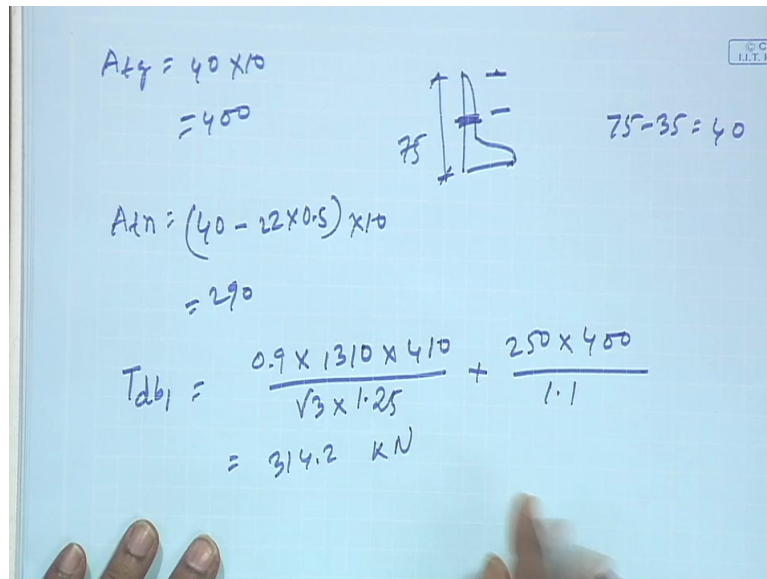 Atg = 40 × 10
= 400
75
75-35 = 40
Atn = (40 - 22×0.5) ×10
= 290
Tdb1 = 0.9 × 1310 × 410 / √3 × 1.25 + 250 × 400 / 1.1
= 314.2 KN
© C
I.I.T.